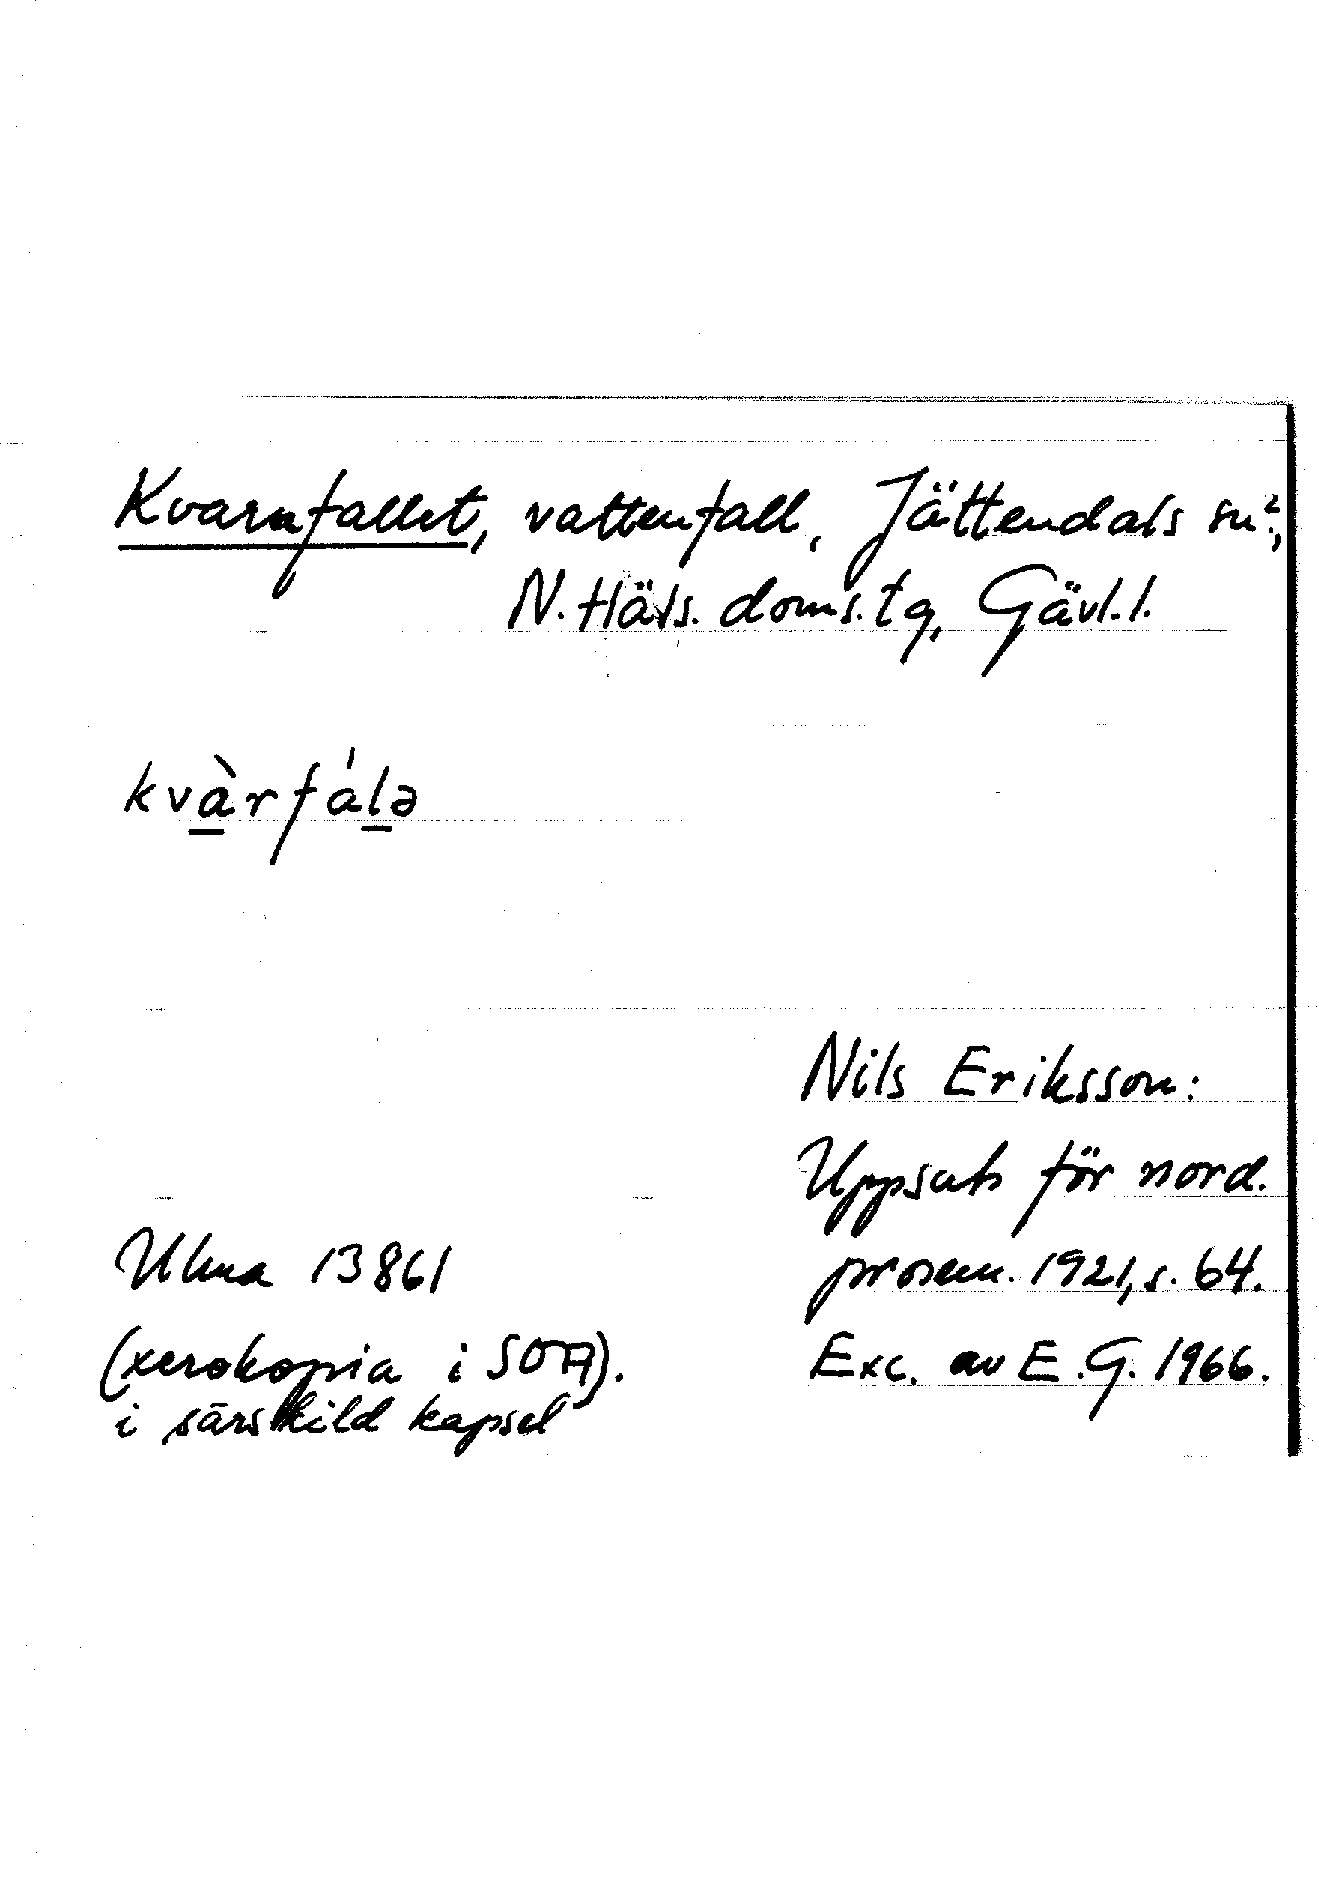 Kvarnfallet, vattenfall, Jättendals sn,
N. Häls. doms.tg, Gävl. l.
kvàrfálə
Nils Eriksson:
Uppsats för nord.
prosem. 1921, s. 64.
Exc. av E.G. 1966.
Ulma 13861
(xerokopia i SOA).
i särskild kapsel